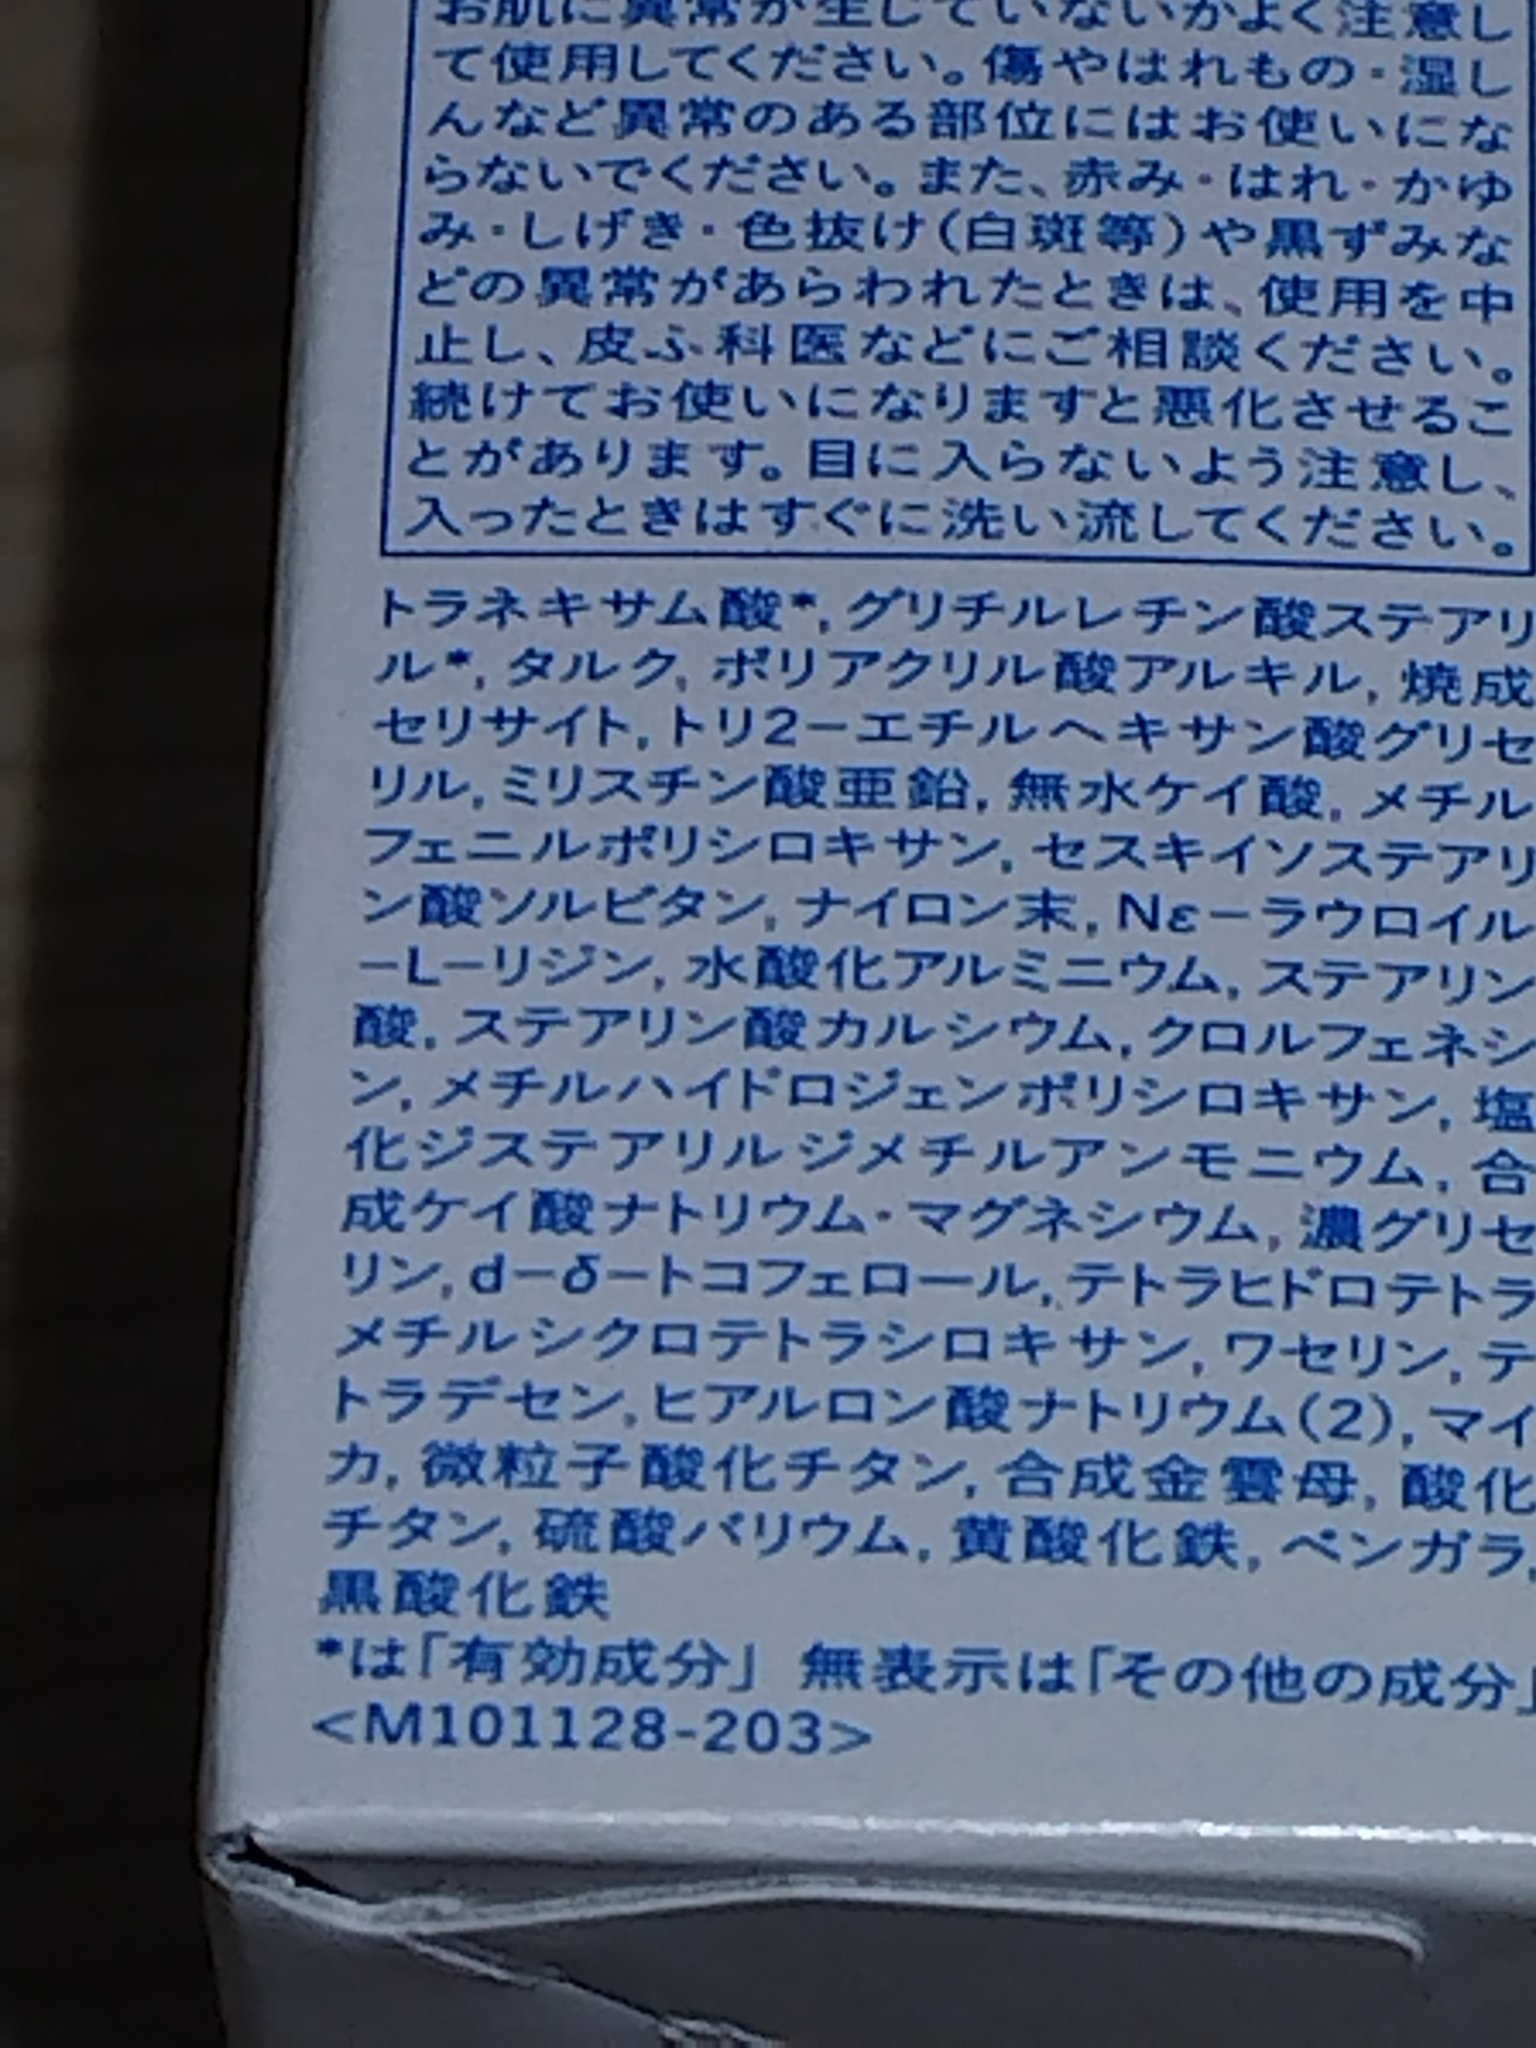 お肌に異常が生じていないかよく注意し
て使用してください。傷やはれもの・湿し
んなど異常のある部位にはお使いにな
らないでください。また、赤み・はれ・かゆ
み・しげき・色抜け(白斑等)や黒ずみな
どの異常があらわれたときは、使用を中
止し、皮ふ科医などにご相談ください。
続けてお使いになりますと悪化させるこ
とがあります。目に入らないよう注意し、
入ったときはすぐに洗い流してください。
トラネキサム酸*,グリチルレチン酸ステアリ
ル*,タルク,ポリアクリル酸アルキル,焼成
セリサイト,トリ2−エチルヘキサン酸グリセ
リル,ミリスチン酸亜鉛,無水ケイ酸,メチル
フェニルポリシロキサン,セスキイソステアリ
ン酸ソルビタン,ナイロン末,Nε−ラウロイル
−L−リジン,水酸化アルミニウム,ステアリン
酸,ステアリン酸カルシウム,クロルフェネシ
ン,メチルハイドロジェンポリシロキサン,塩
化ジステアリルジメチルアンモニウム,合
成ケイ酸ナトリウム・マグネシウム,濃グリセ
リン,d−δ−トコフェロール,テトラヒドロテトラ
メチルシクロテトラシロキサン,ワセリン,テ
トラデセン,ヒアルロン酸ナトリウム(2),マイ
カ,微粒子酸化チタン,合成金雲母,酸化
チタン,硫酸バリウム,黄酸化鉄,ベンガラ,
黒酸化鉄
*は「有効成分」 無表示は「その他の成分」
<M101128-203>